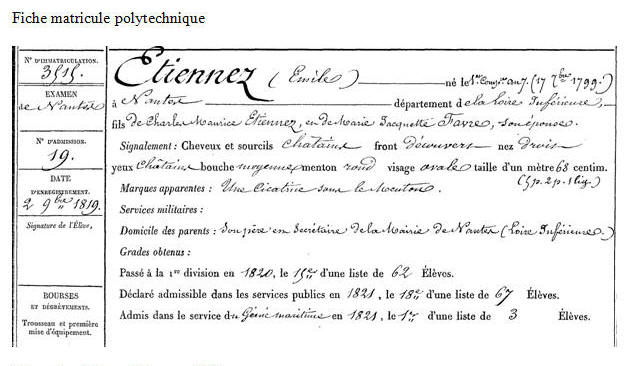 Fiche matricule polytechnique
N° D'IMMATRICULATION.
3515.
EXAMEN
de Nantes
N° D'ADMISSION.
19.
DATE
D'ENREGISTREMENT.
2 9bre 1819.
Signature de l'Élève.
BOURSES
ET DÉGRÈVEMENTS.
Trousseau et première
mise d'équipement.
Etiennez (Emile) né le 1er Comp.re an 7. (17 7bre 1799.)
à Nantes département de la Loire Inférieure,
fils de Charles Maurice Etiennez, et de Marie Jacquette Favre, son épouse.
Signalement : Cheveux et sourcils châtains front découvert nez droit
yeux Châtains bouche moyenne menton rond visage ovale taille d'un mètre 68 centim.
(5 p. 2 p. 1 lig.)
Marques apparentes : Une Cicatrice sous le Menton.
Services militaires :
Domicile des parents : Son père est Secrétaire de la Mairie de Nantes (Loire Inférieure.)
Grades obtenus :
Passé à la 1re division en 1820, le 15e d'une liste de 62 Élèves.
Déclaré admissible dans les services publics en 1821, le 18e d'une liste de 67 Élèves.
Admis dans le service du Génie maritime en 1821, le 1er d'une liste de 3 Élèves.